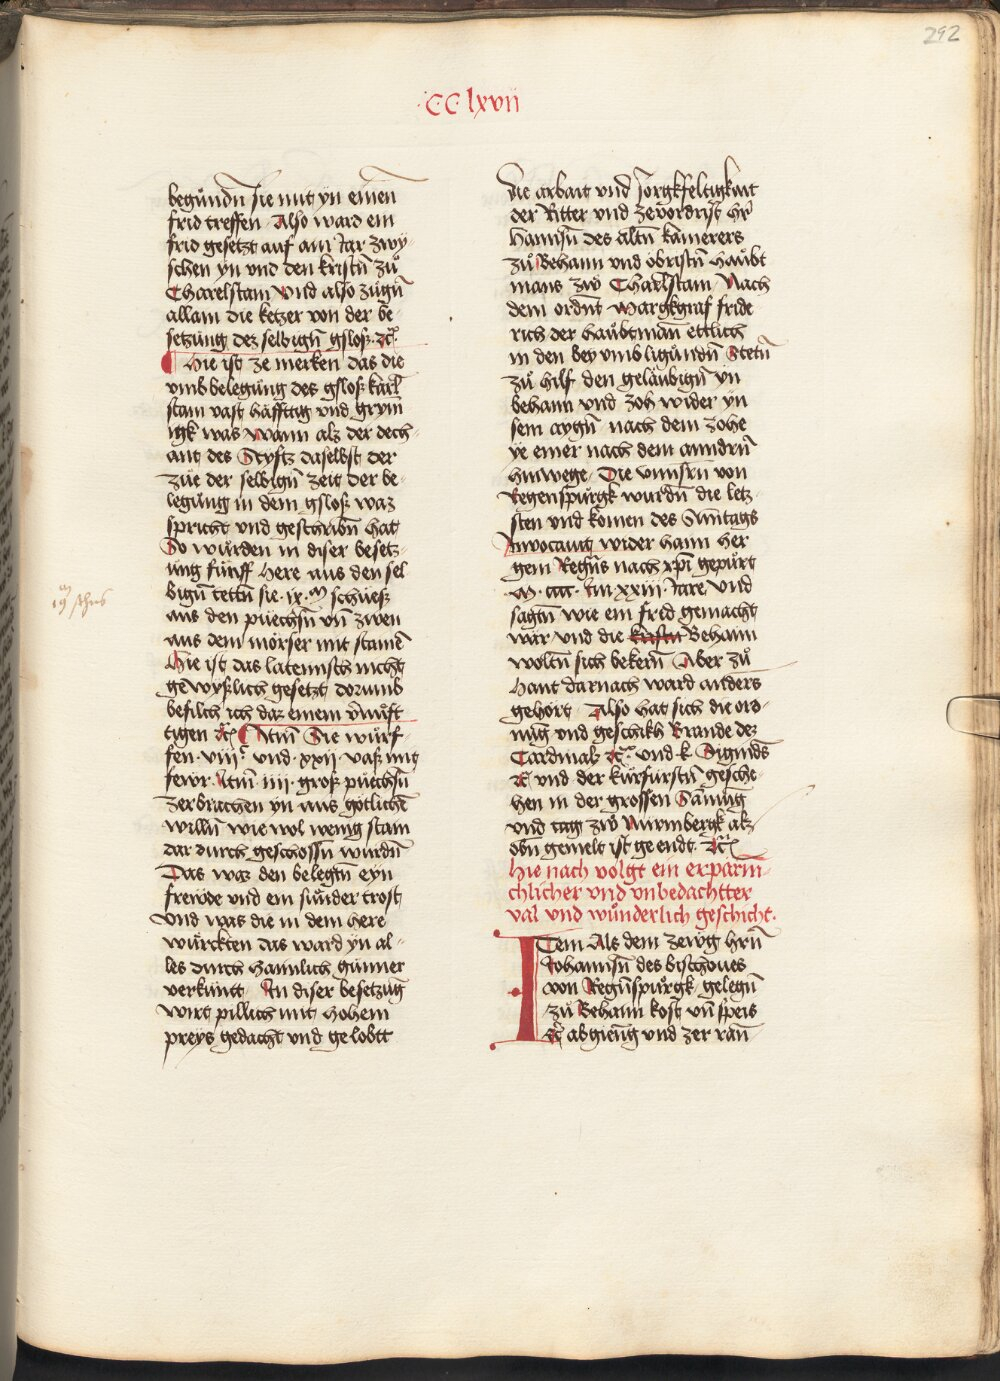 292
·CC lxvii
begu̇ndn̄ sie mit yn einen
frid treffen · Also ward ein
frid gesetzt auf ain Jar zwy
schen yn vnd den kristn̄ zu̇
Tharelstain Vnd also zugn̄
allain die ketzer von der be-
setzung dez selbign̄ gsloß · zc̄
Hie ist ze merken das die
vmb belegu̇ng des gsloß karl
stain vast häfftig vnd grym̄
igk was Wann als der dech-
ant des Styftz daselbst der
züe der selbign̄ zeit der be-
legu̇ng in dem gsloß waz
spricht vnd geschribn̄ hat
Do wu̇rden in diser besetz-
ung fünff here aus den sel
bign̄ tettn̄ sie · ix · m schüeß
aus den püechsn̄ vn̄ zwen
aus dem mörser mit stainē
Hie ist das lateinisch nicht
gewyßlich gesetzt dorumb
befilch ich daz einem v̄nu̇ft
tigen zc̄ Itm̄ Sie würf-
fen · viiiᶜ vnd · xxii · vaß mit
fewr · Itm̄ iiii groß püechsn̄
zerbrachen yn aus götlichē
willn̄ wie wol wenig stain
dar durch geschossn̄ wurdn̄
Das waz den belegtn̄ eyn
frewde vnd ein su̇nder trost
Vnd was die in dem here
würckten das ward yn al-
les durch haimlich gunner
verkuntt · In diser besetzu̅g
wirt pillich mit hohem
preys gedacht vnd gelobtt
die arbait vnd sorgkfeltigkait
der Ritter vnd zevordrist hr̄
Hannsn̄ des altn̄ kamerers
zu̇ Behaim vnd obristn̄ haübt
mans zẘ Tharlstain · Nach
dem ordn̄t Margkgraf fride
rich der haübtman̄ ettlich
in den bey vmbligu̇ndn̄ Stetn̄
zu̇ hilf den geläubign̄ yn
behaim vnd zoh wider yn
sein aygn̄ nach dem zohe
ye einer nach dem anndrn̄
hinwege · Die vnnsrn̄ von
Regenspürgk wurdn̄ die letz-
sten vnd komen des Suntags
Invocauit wider haim her
gein Regn̄s nach xp̄i gepürt
M · cccc · Im xxiii · Jare vnd
sagtn̄ wie ein frid gemacht
wär vnd die kristn̄ Behaim
woltn̄ sich bekern̄ Aber zu̇
hant darnach ward anders
gehört · Also hat sich die ord-
nūg vnd geschikh Brande dez
Cardinals zc̄ vnd k · Sigmūds
zc̄ vnd der kürfürstn̄ gesche-
hen in der grossen Samūg
vnd tag zẘ Nürmbergk als
obn̄ gemelt ist geendt · zc̄
Hie nach volgt ein erparm-
chlicher vnd vnbedachtter
val vnd wu̇nderlich geschicht ·
Item Als dem zewg hrn̄
Johannsn̄ des bischoues
von Regn̄spürgk gelegn̄
zu̇ Behaim kost vn̄ speis
zc̄ abgieng vnd zer ran̄